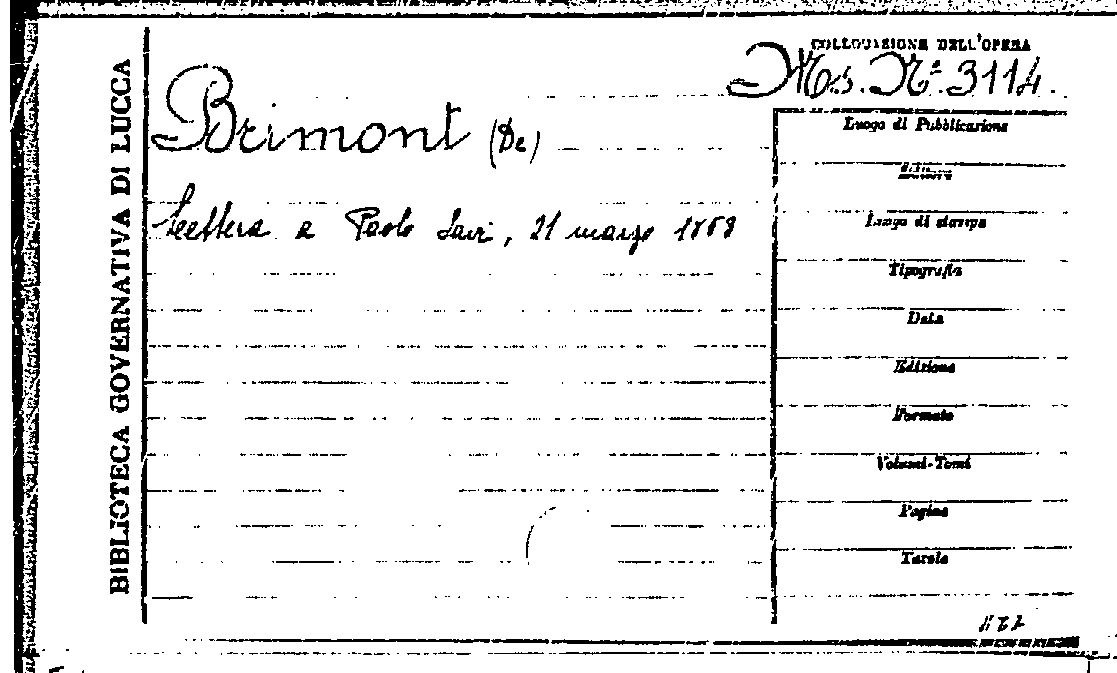 BIBLIOTECA GOVERNATIVA DI LUCCA
COLLOCAZIONE DELL'OPERA
Ms. Nº. 3114.
Brimont (De)
Lettera a Paolo Savi, 21 marzo 1868
Luogo di Pubblicazione
Luogo di stampa
Tipografia
Data
Edizione
Formato
Volumi-Tomi
Pagine
Tavole